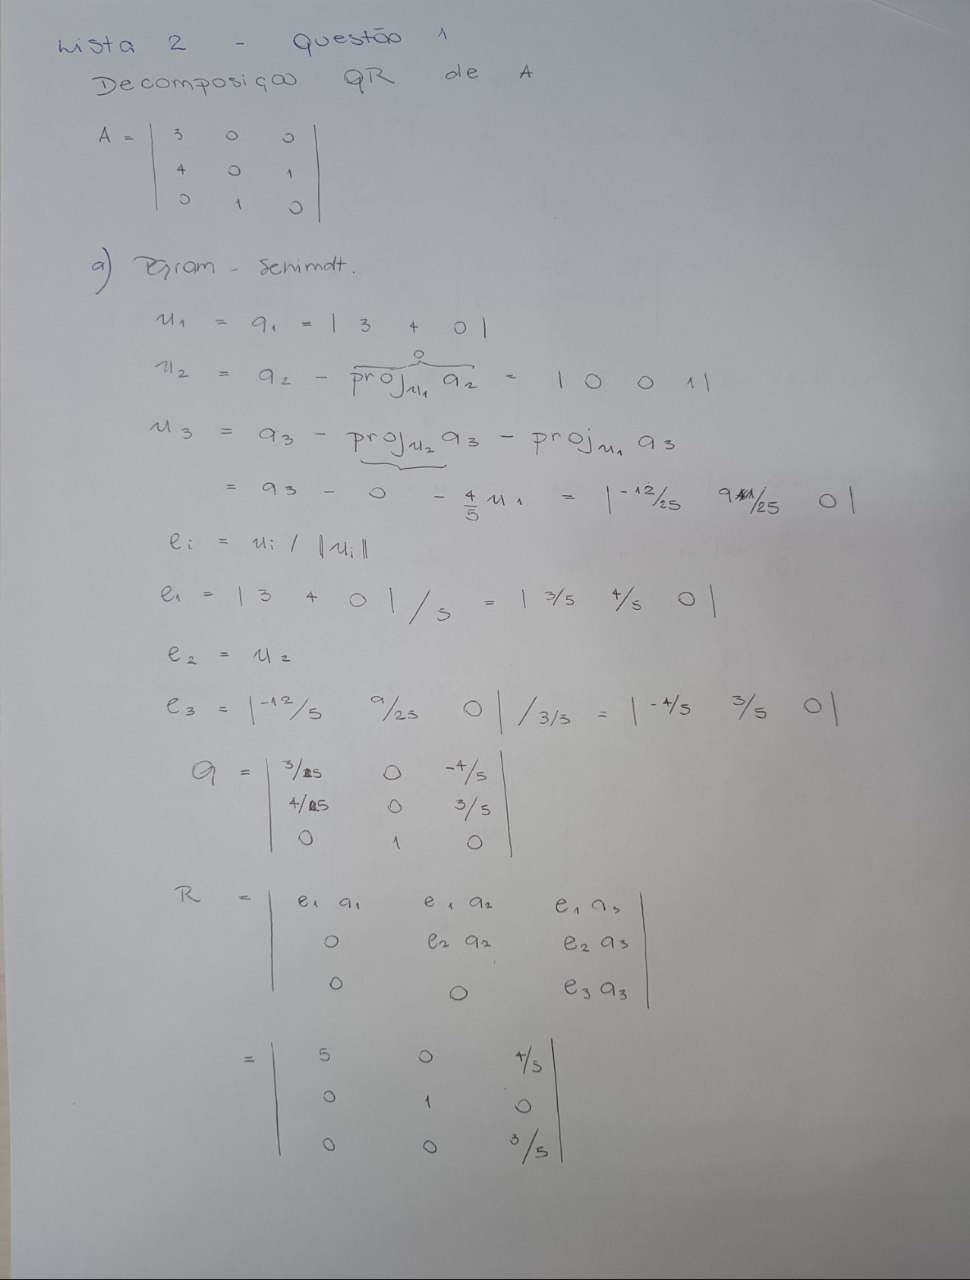 Lista 2 - Questão 1
Decomposiçao QR de A
A = | 3 0 0 |
| 4 0 1 |
| 0 1 0 |
a) Gram - Schimdt.
u1 = a1 = | 3 4 0 |
0
u2 = a2 - proj u1 a2 = | 0 0 1 |
u3 = a3 - proj u2 a3 - proj u1 a3
= a3 - 0 - 4/5 u1 = | -12/25 9/25 0 |
ei = ui / ||ui||
e1 = | 3 4 0 | / 5 = | 3/5 4/5 0 |
e2 = u2
e3 = | -12/5 9/25 0 | / 3/5 = | -4/5 3/5 0 |
Q = | 3/5 0 -4/5 |
| 4/5 0 3/5 |
| 0 1 0 |
R = | e1 a1 e1 a2 e1 a3 |
| 0 e2 a2 e2 a3 |
| 0 0 e3 a3 |
= | 5 0 4/5 |
| 0 1 0 |
| 0 0 3/5 |